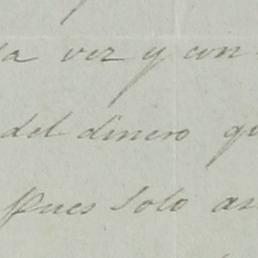 la vez y con
del dinero qu
pues solo as